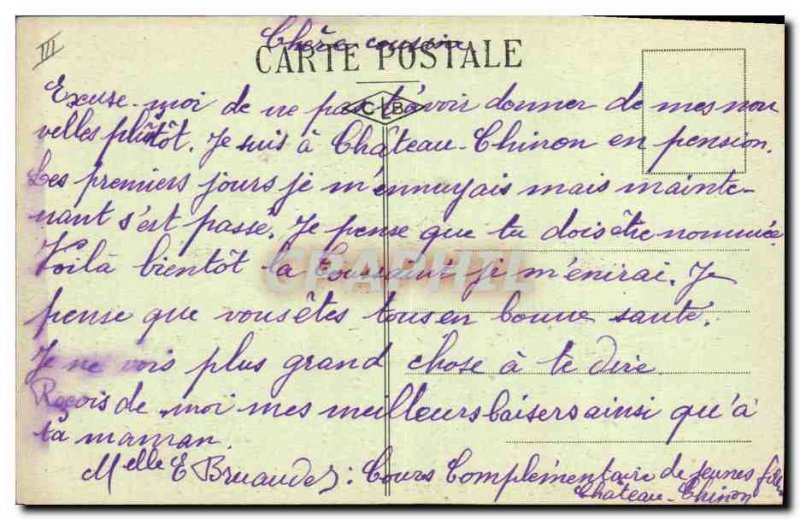 III
Chère cousine
CARTE POSTALE
Excuse-moi de ne pas t'avoir donner de mes nou
CLB
velles plutôt. Je suis à Château-Chinon en pension.
Les premiers jours je m'ennuyais mais mainte-
nant s'est passé. Je pense que tu dois être nommée
Voilà bientôt la Toussaint je m'énirai. Je
CPAPHIL
pense que vous êtes tous en bonne santé.
Je ne vois plus grand chose à te dire
Reçois de moi mes meilleurs baisers ainsi qu'à
ta maman.
Melle E : Cours Complémentaire de jeunes filles
Château-Chinon